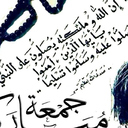 إن الله وملائكته يصلون على النبي
يا أيها الذين آمنوا
صلوا عليه وسلموا تسليما
جمعة